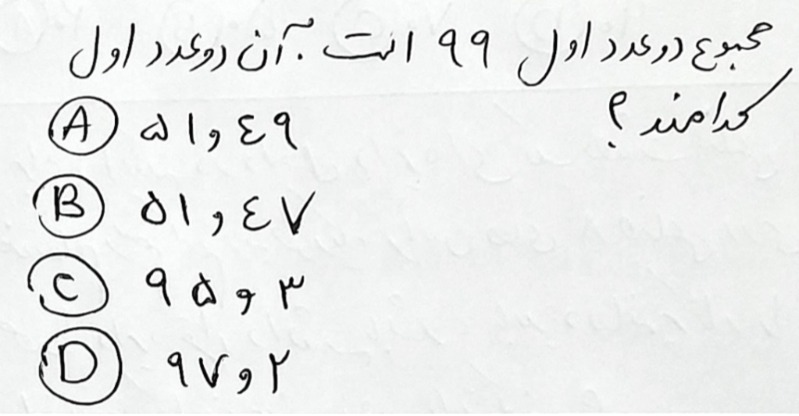 مجموع دو عدد اول ۹۹ است. آن دو عدد اول
کدامند؟
A ٤۹ و ۵۱
B ٤۷ و ۵۱
C ۳ و ۹۵
D ۲ و ۹۷